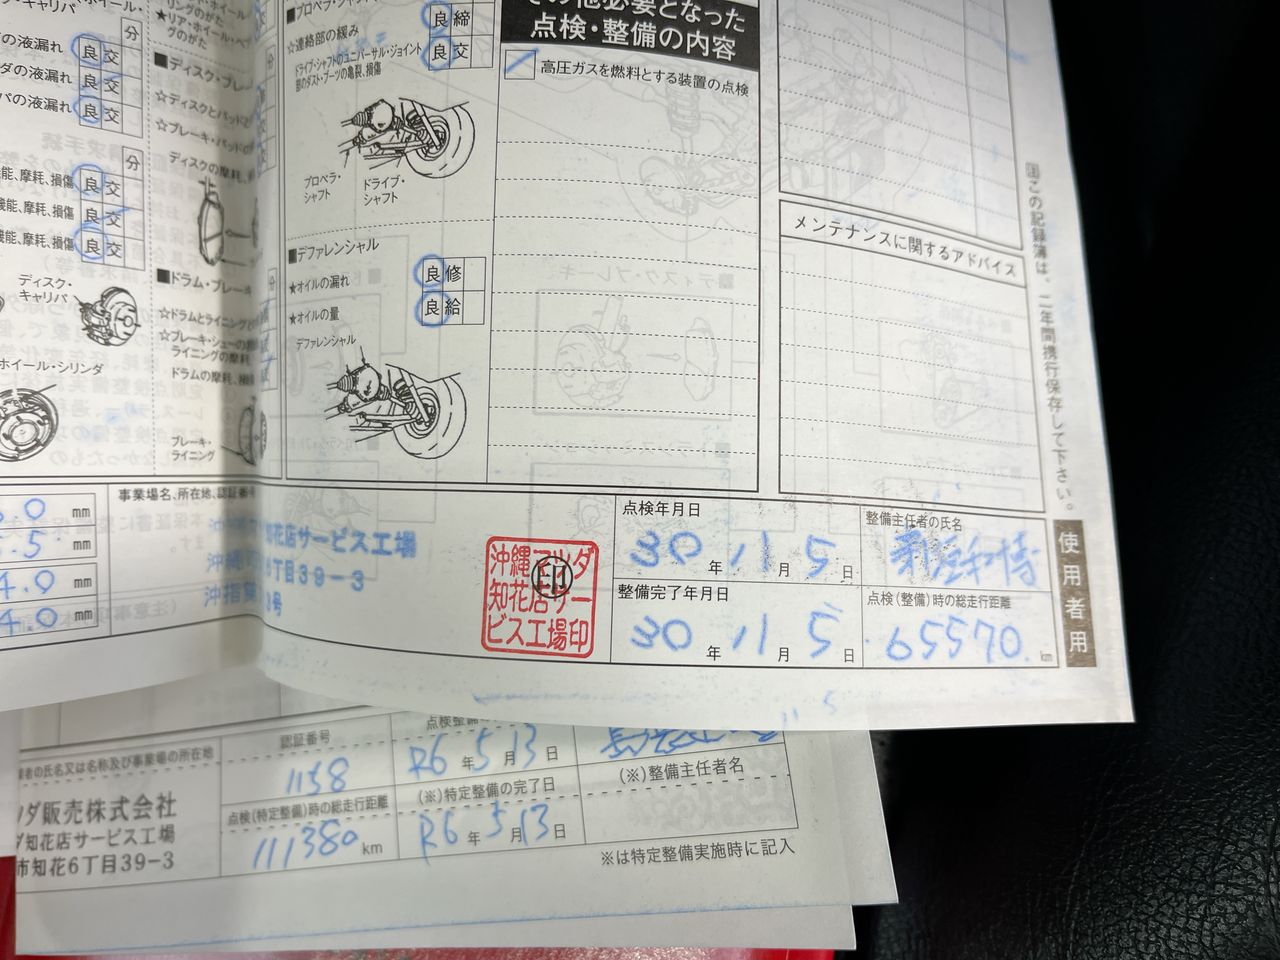 キャリパ
の液漏れ 良 交
ダの液漏れ 良 交
パの液漏れ 良 交
分
機能、摩耗、損傷 良 交
機能、摩耗、損傷 良 交
機能、摩耗、損傷 良 交
ディスク・
キャリパ
ホイール・シリンダ
★リア・ホイール・ベ
グのがた
■ディスク・ブレ
☆ディスクとパッド
☆ブレーキ・パッドの
ディスクの摩耗、
■ドラム・ブレーキ
☆ドラムとライニング
☆ブレーキ・シューの
ライニングの摩耗
ドラムの摩耗、
ブレーキ・
ライニング
■プロペラ・シャフト
☆連結部の緩み 良 締
ドライブ・シャフトのユニバーサル・ジョイント
部のダスト・ブーツの亀裂、損傷 良 交
プロペラ・
シャフト
ドライブ・
シャフト
■デファレンシャル
★オイルの漏れ 良 修
★オイルの量 良 給
デファレンシャル
その他必要となった
点検・整備の内容
高圧ガスを燃料とする装置の点検
メンテナンスに関するアドバイス
注この記録簿は、二年間携行保存して下さい。
使用者用
.0 mm
.5 mm
4.0 mm
4.0 mm
事業場名、所在地、認証番号
知花店サービス工場
6丁目39-3
沖縄マツダ
知花店サー
ビス工場印
印
点検年月日
30年 11月 5日
整備主任者の氏名
整備完了年月日
30年 11月 5日
点検(整備)時の総走行距離
65570 km
者の氏名又は名称及び事業場の所在地
ツダ販売株式会社
ダ知花店サービス工場
市知花6丁目39-3
認証番号
1158
点検(特定整備)時の総走行距離
111380 km
点検整備の
R6年 5月 13日
(※)特定整備の完了日
R6年 5月 13日
(※)整備主任者名
※は特定整備実施時に記入